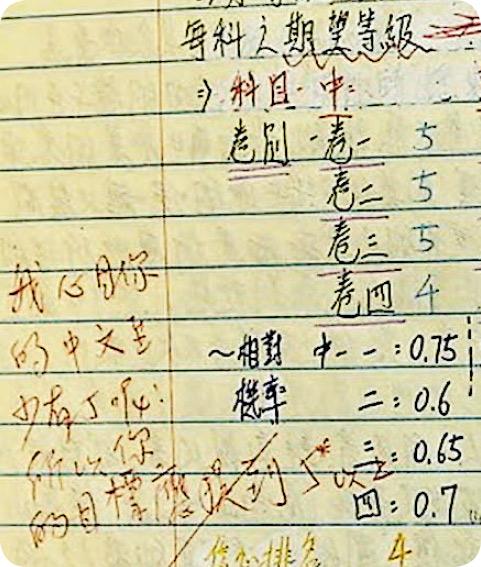 每科之期望等級
⇒ 科目 - 中:
卷別 - 卷一 5
卷二 5
卷三 5
卷四 4
～相對 中 - 一 : 0.75
機率 二 : 0.6
三 : 0.65
四 : 0.7
我心目你
的中文至
少有5咧!
所以你
的目標應提到5*以上
信心排名 4